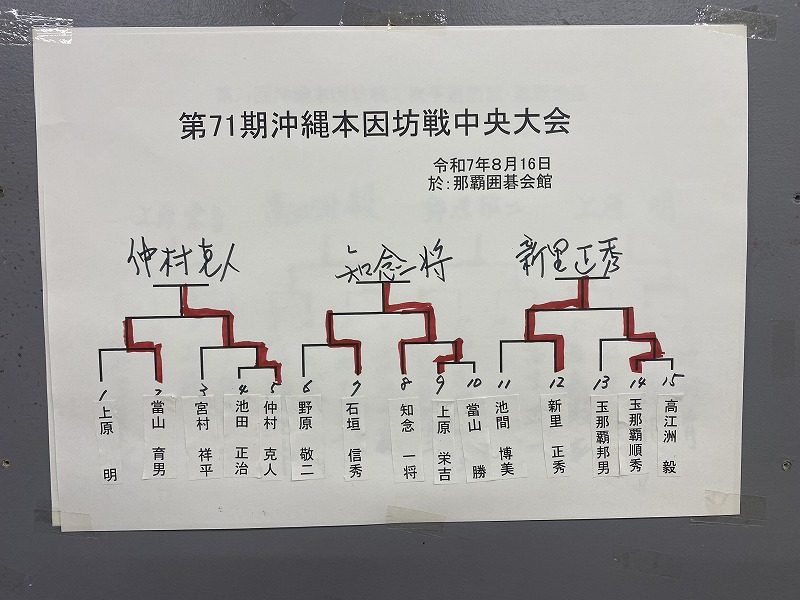 第71期沖縄本因坊戦中央大会
令和7年8月16日
於:那覇囲碁会館
仲村克人
知念一将
新里正秀
1 上原 明
2 當山 育男
3 宮村 祥平
4 池田 正治
5 仲村 克人
6 野原 敬二
7 石垣 信秀
8 知念 一将
9 上原 栄吉
10 當山 勝
11 池間 博美
12 新里 正秀
13 玉那覇邦男
14 玉那覇順秀
15 高江洲 毅